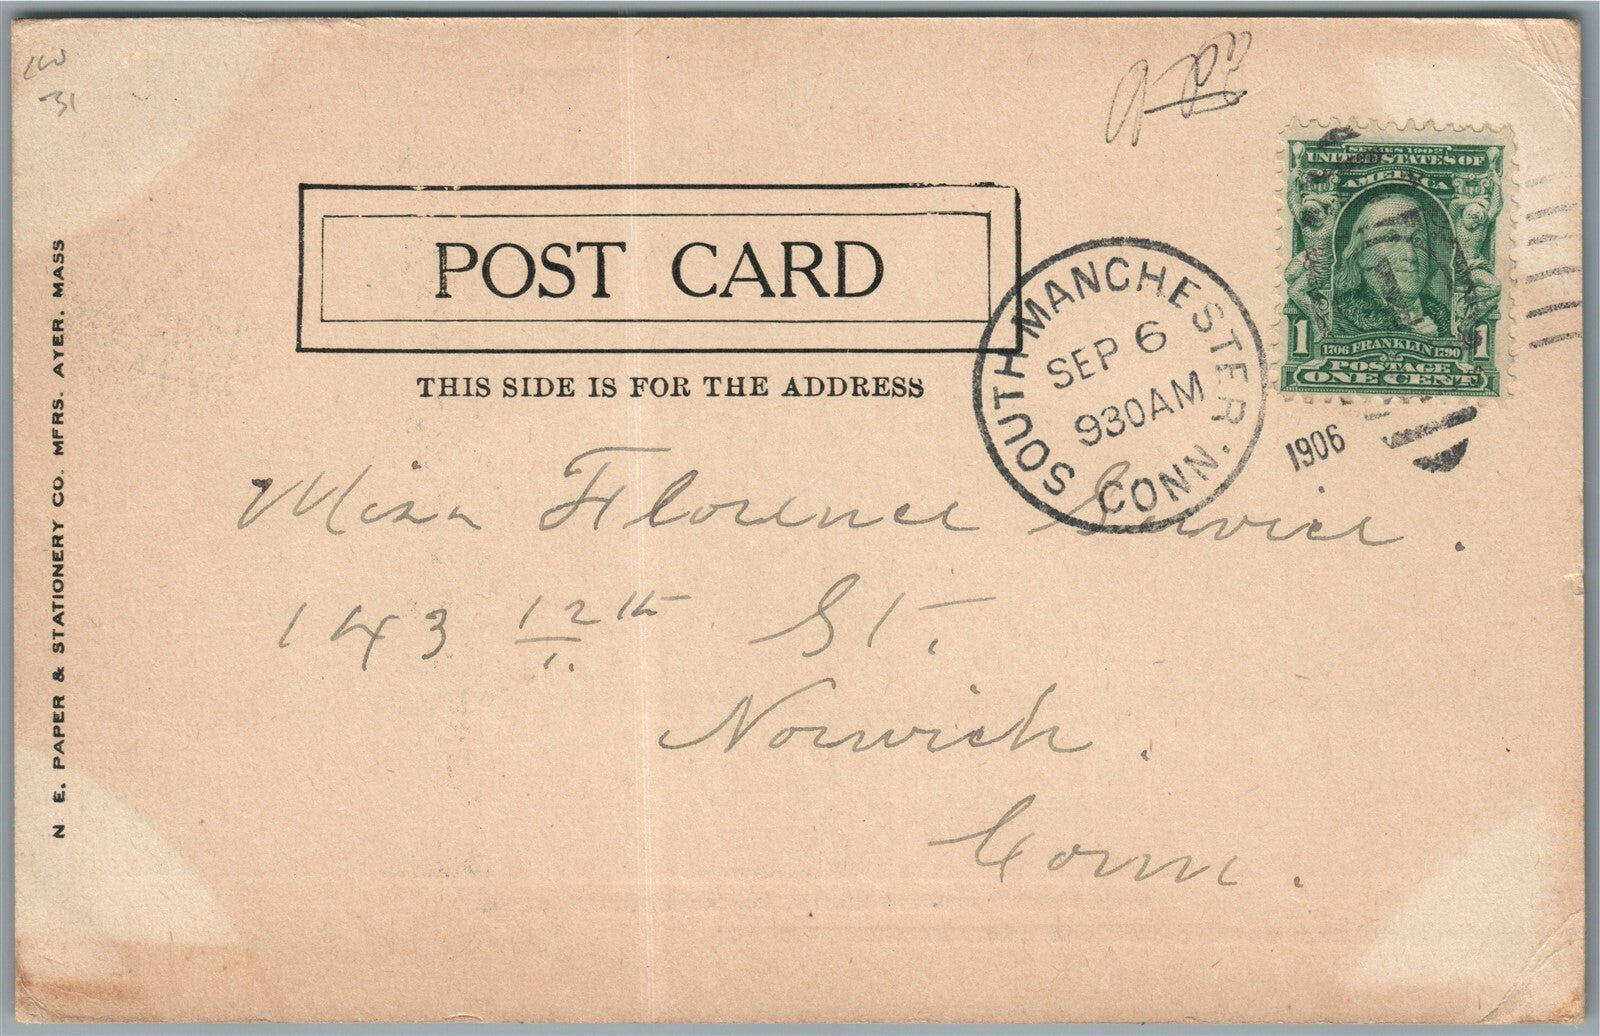 31
SERIES 1902
UNITED STATES OF
AMERICA
1 1
1706 FRANKLIN 1790
POSTAGE
ONE CENT
POST CARD
THIS SIDE IS FOR THE ADDRESS
SOUTH MANCHESTER CONN.
SEP 6
930AM
1906
Miss Florence Service.
143 12th St.
Norwich.
Conn.
N. E. PAPER & STATIONERY CO. MFRS. AYER. MASS